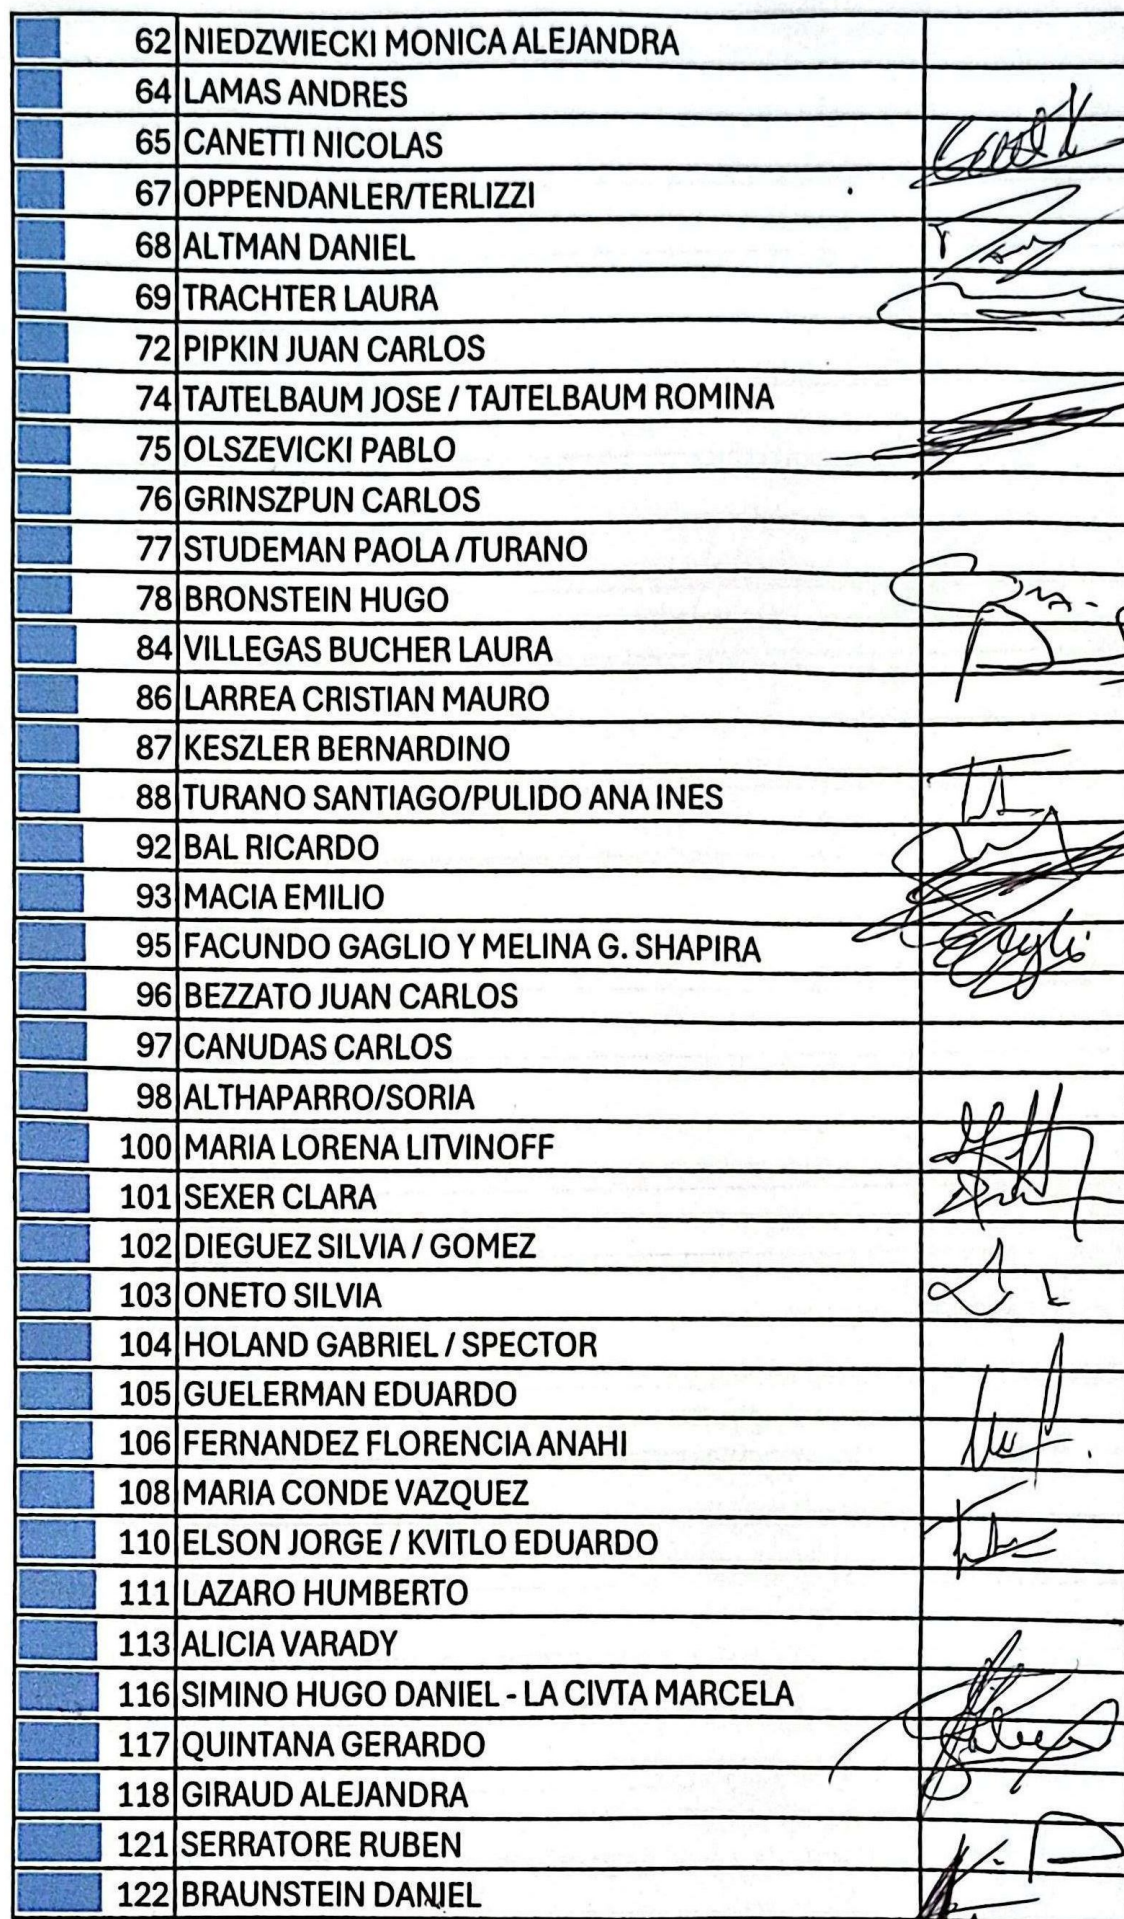 62 NIEDZWIECKI MONICA ALEJANDRA
64 LAMAS ANDRES
65 CANETTI NICOLAS
67 OPPENDANLER/TERLIZZI
68 ALTMAN DANIEL
69 TRACHTER LAURA
72 PIPKIN JUAN CARLOS
74 TAJTELBAUM JOSE / TAJTELBAUM ROMINA
75 OLSZEVICKI PABLO
76 GRINSZPUN CARLOS
77 STUDEMAN PAOLA /TURANO
78 BRONSTEIN HUGO
84 VILLEGAS BUCHER LAURA
86 LARREA CRISTIAN MAURO
87 KESZLER BERNARDINO
88 TURANO SANTIAGO/PULIDO ANA INES
92 BAL RICARDO
93 MACIA EMILIO
95 FACUNDO GAGLIO Y MELINA G. SHAPIRA
96 BEZZATO JUAN CARLOS
97 CANUDAS CARLOS
98 ALTHAPARRO/SORIA
100 MARIA LORENA LITVINOFF
101 SEXER CLARA
102 DIEGUEZ SILVIA / GOMEZ
103 ONETO SILVIA
104 HOLAND GABRIEL / SPECTOR
105 GUELERMAN EDUARDO
106 FERNANDEZ FLORENCIA ANAHI
108 MARIA CONDE VAZQUEZ
110 ELSON JORGE / KVITLO EDUARDO
111 LAZARO HUMBERTO
113 ALICIA VARADY
116 SIMINO HUGO DANIEL - LA CIVTA MARCELA
117 QUINTANA GERARDO
118 GIRAUD ALEJANDRA
121 SERRATORE RUBEN
122 BRAUNSTEIN DANIEL